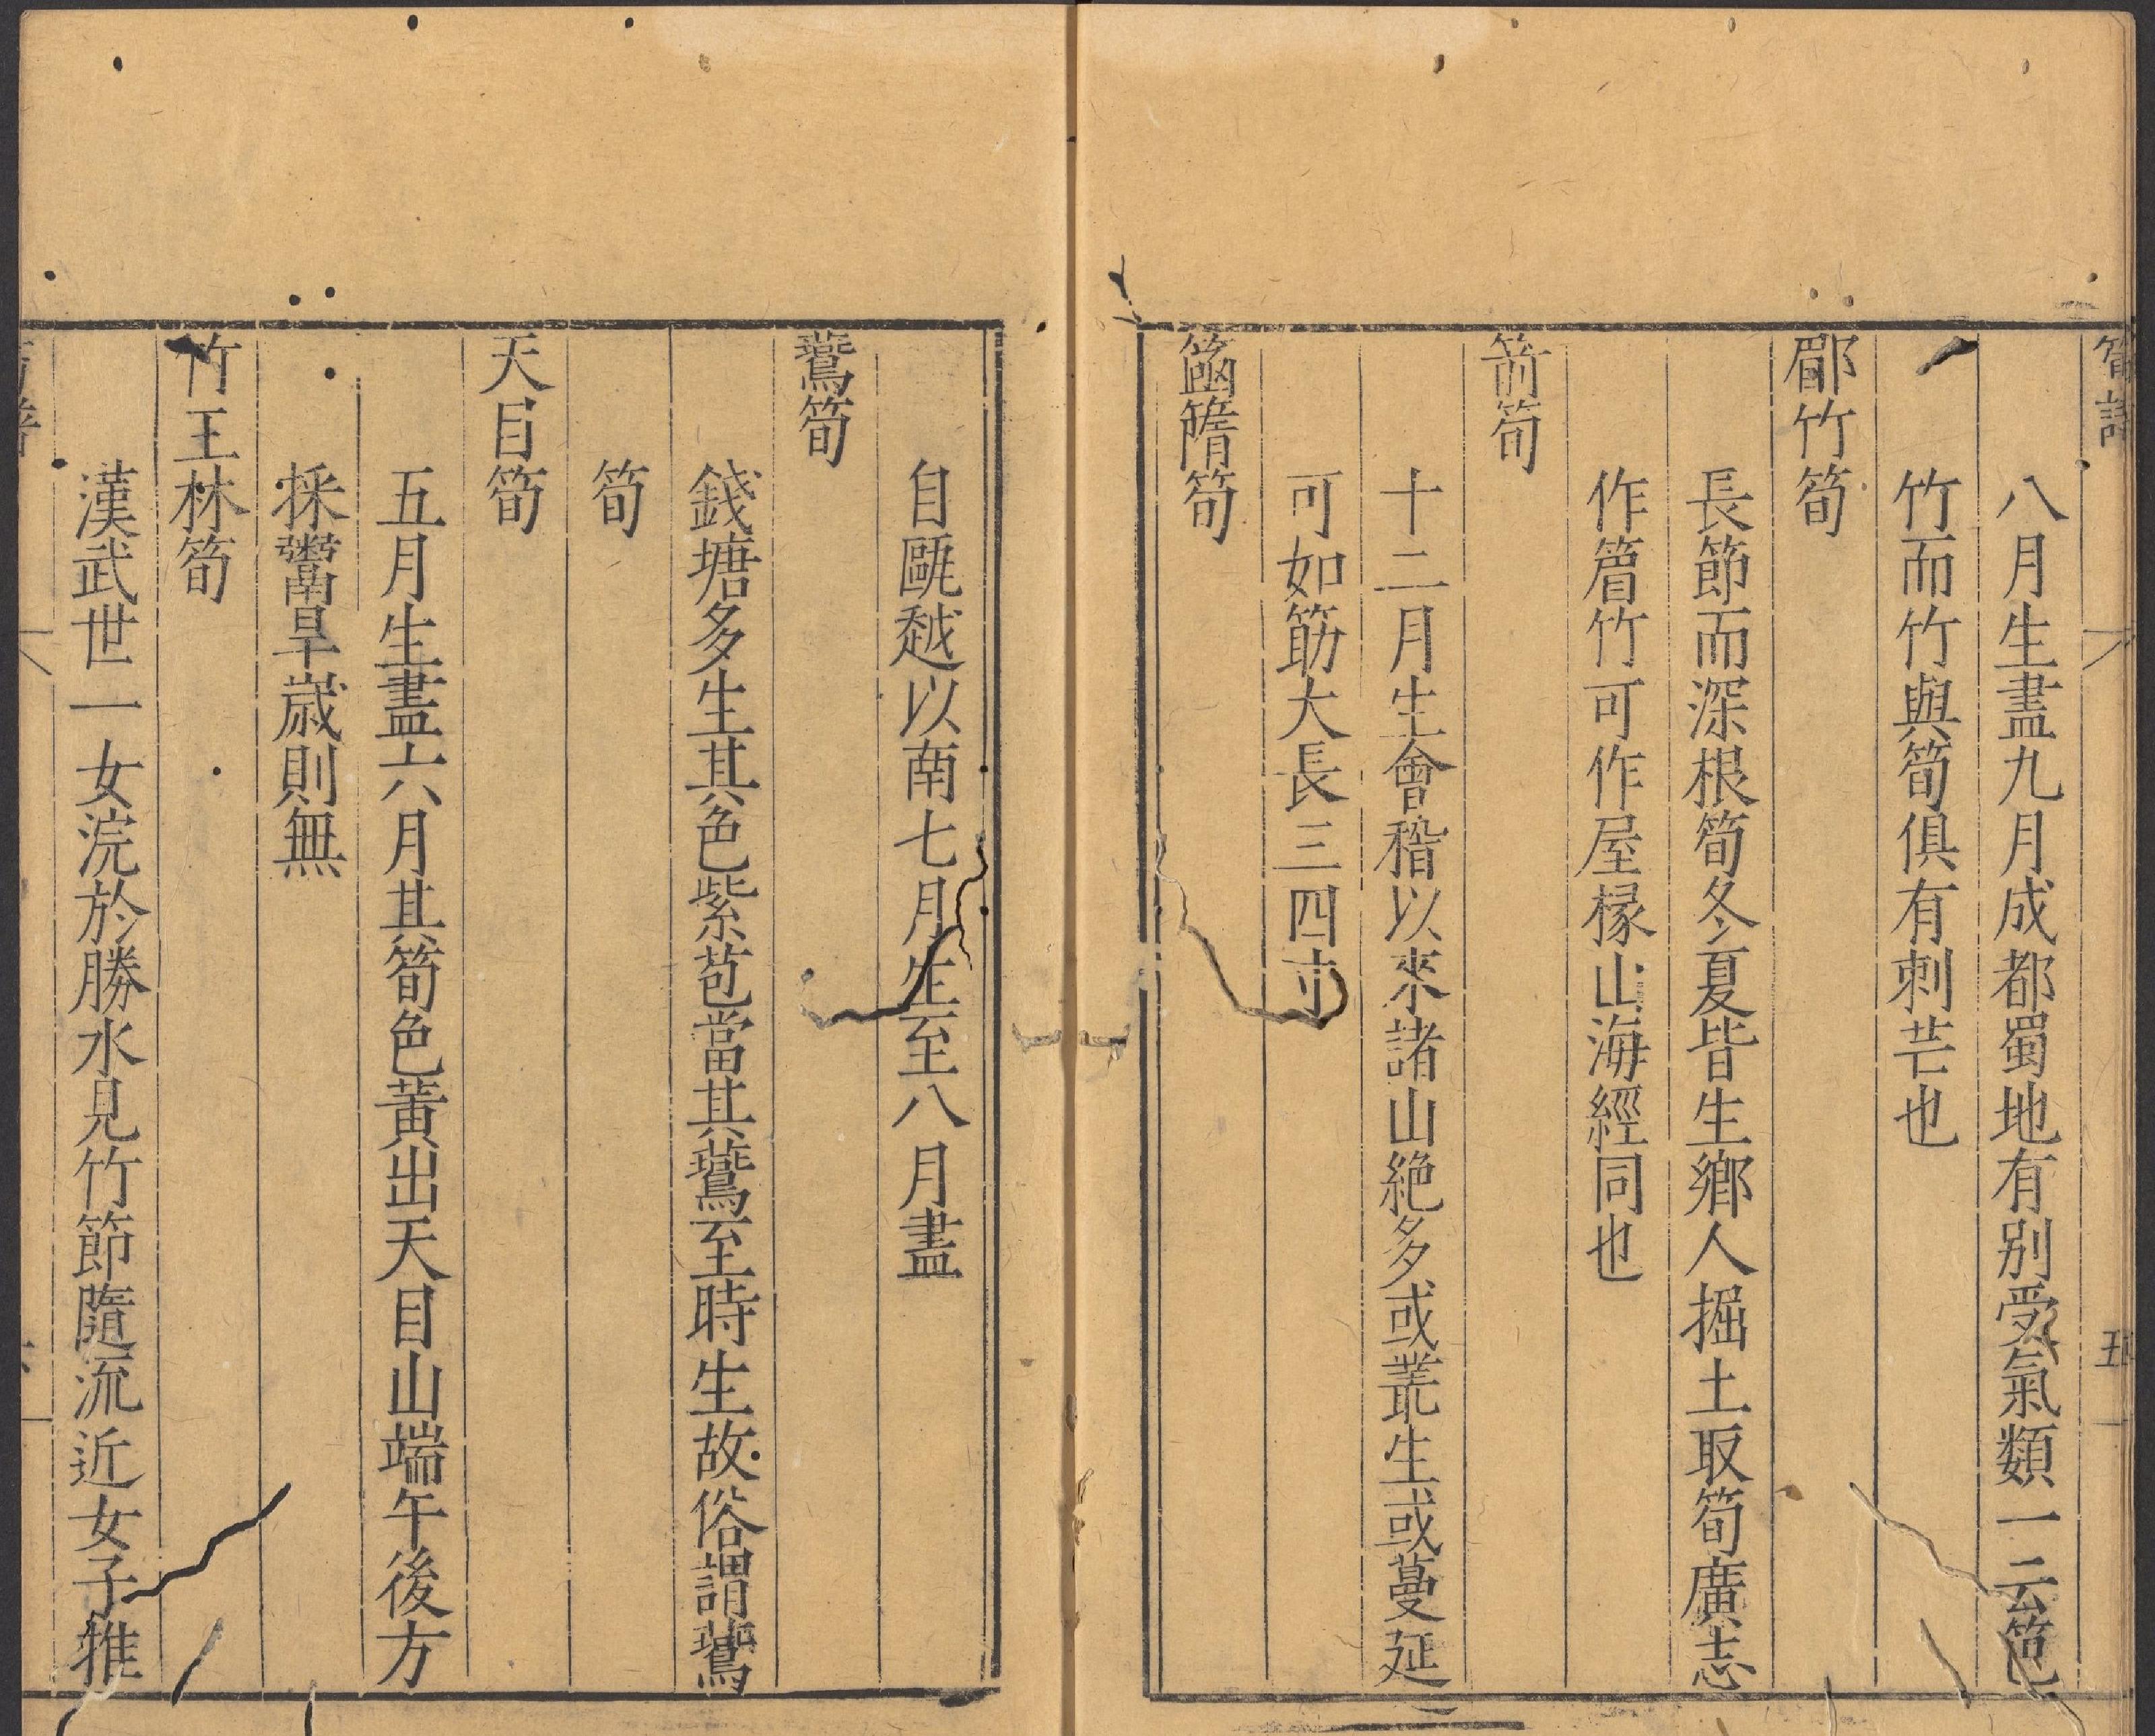 筍譜 五
八月生盡九月成都蜀地有别受氣類一云笆
竹而竹與筍俱有刺芒也
䣑竹筍
長節而深根筍冬夏皆生鄉人掘土取筍廣志
作䈞竹可作屋椽山海經同也
箭筍
十二月生會稽以來諸山絶多或叢生或蔓延
可如筯大長三四寸
筍
自甌越以南七月生至八月盡
鷟筍
錢塘多生其色紫苞當其鷟至時生故俗謂鷟
筍
天目筍
五月生盡六月其筍色黃出天目山端午後方
採鬻旱歲則無
竹王林筍
漢武世一女浣於勝水見竹節隨流近女子推